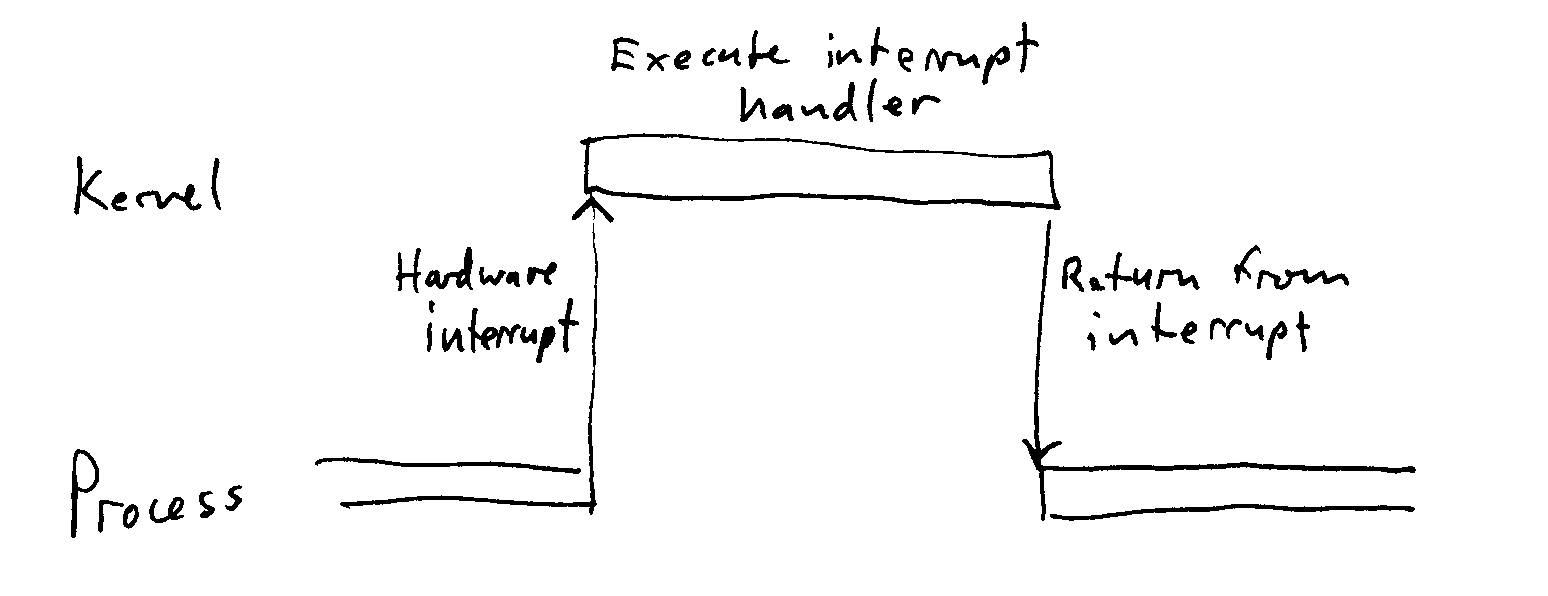 Execute interrupt
handler
Kernel
Hardware
interrupt
Return from
interrupt
Process